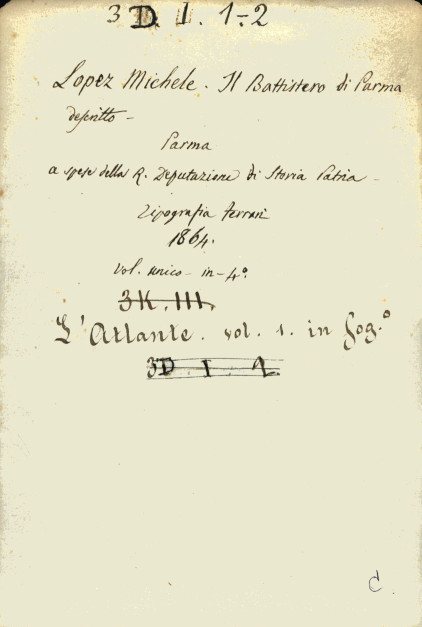 3 D. I. 1-2
Lopez Michele. Il Battistero di Parma
descritto -
Parma
a spese della R. Deputazione di Storia Patria -
Tipografia Ferrari
1864.
vol. unico - in - 4°.
3K. III.
L'Atlante. vol. 1. in fog.°
3D. I. 2
C.